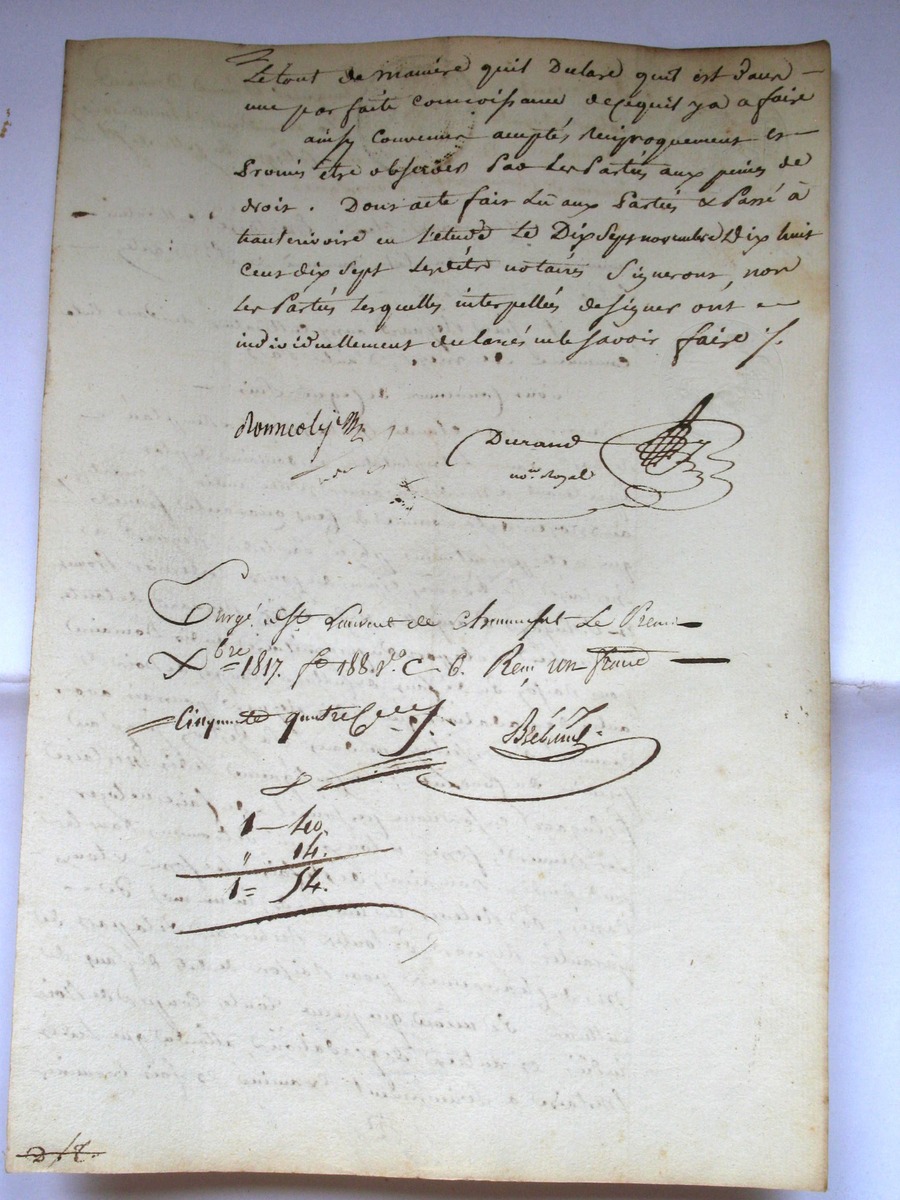 Le tout de manière quil Declare quil est Dans
une parfaite connoissance de cequil ya a faire
ainsy convenu acceptés réciproquement et
Promis être observés Par Les Parties aux peines de
droit. Dont acte fait Lu aux Parties & Passé à
en l'étude Le Dix Sept novembre Dix huit
cent dix Sept Lesdits notaires Signeront, non
Les Parties Lesquelles interpellées designer ont
individuellement declarés nele Savoir faire ./.
Durand
no.re Royal
Le Premier
Xbre 1817. fo 188 Vo C 6. Reçu un franc
Cinquante quatre C.es
1 — 40.
" 14.
1 = 54.